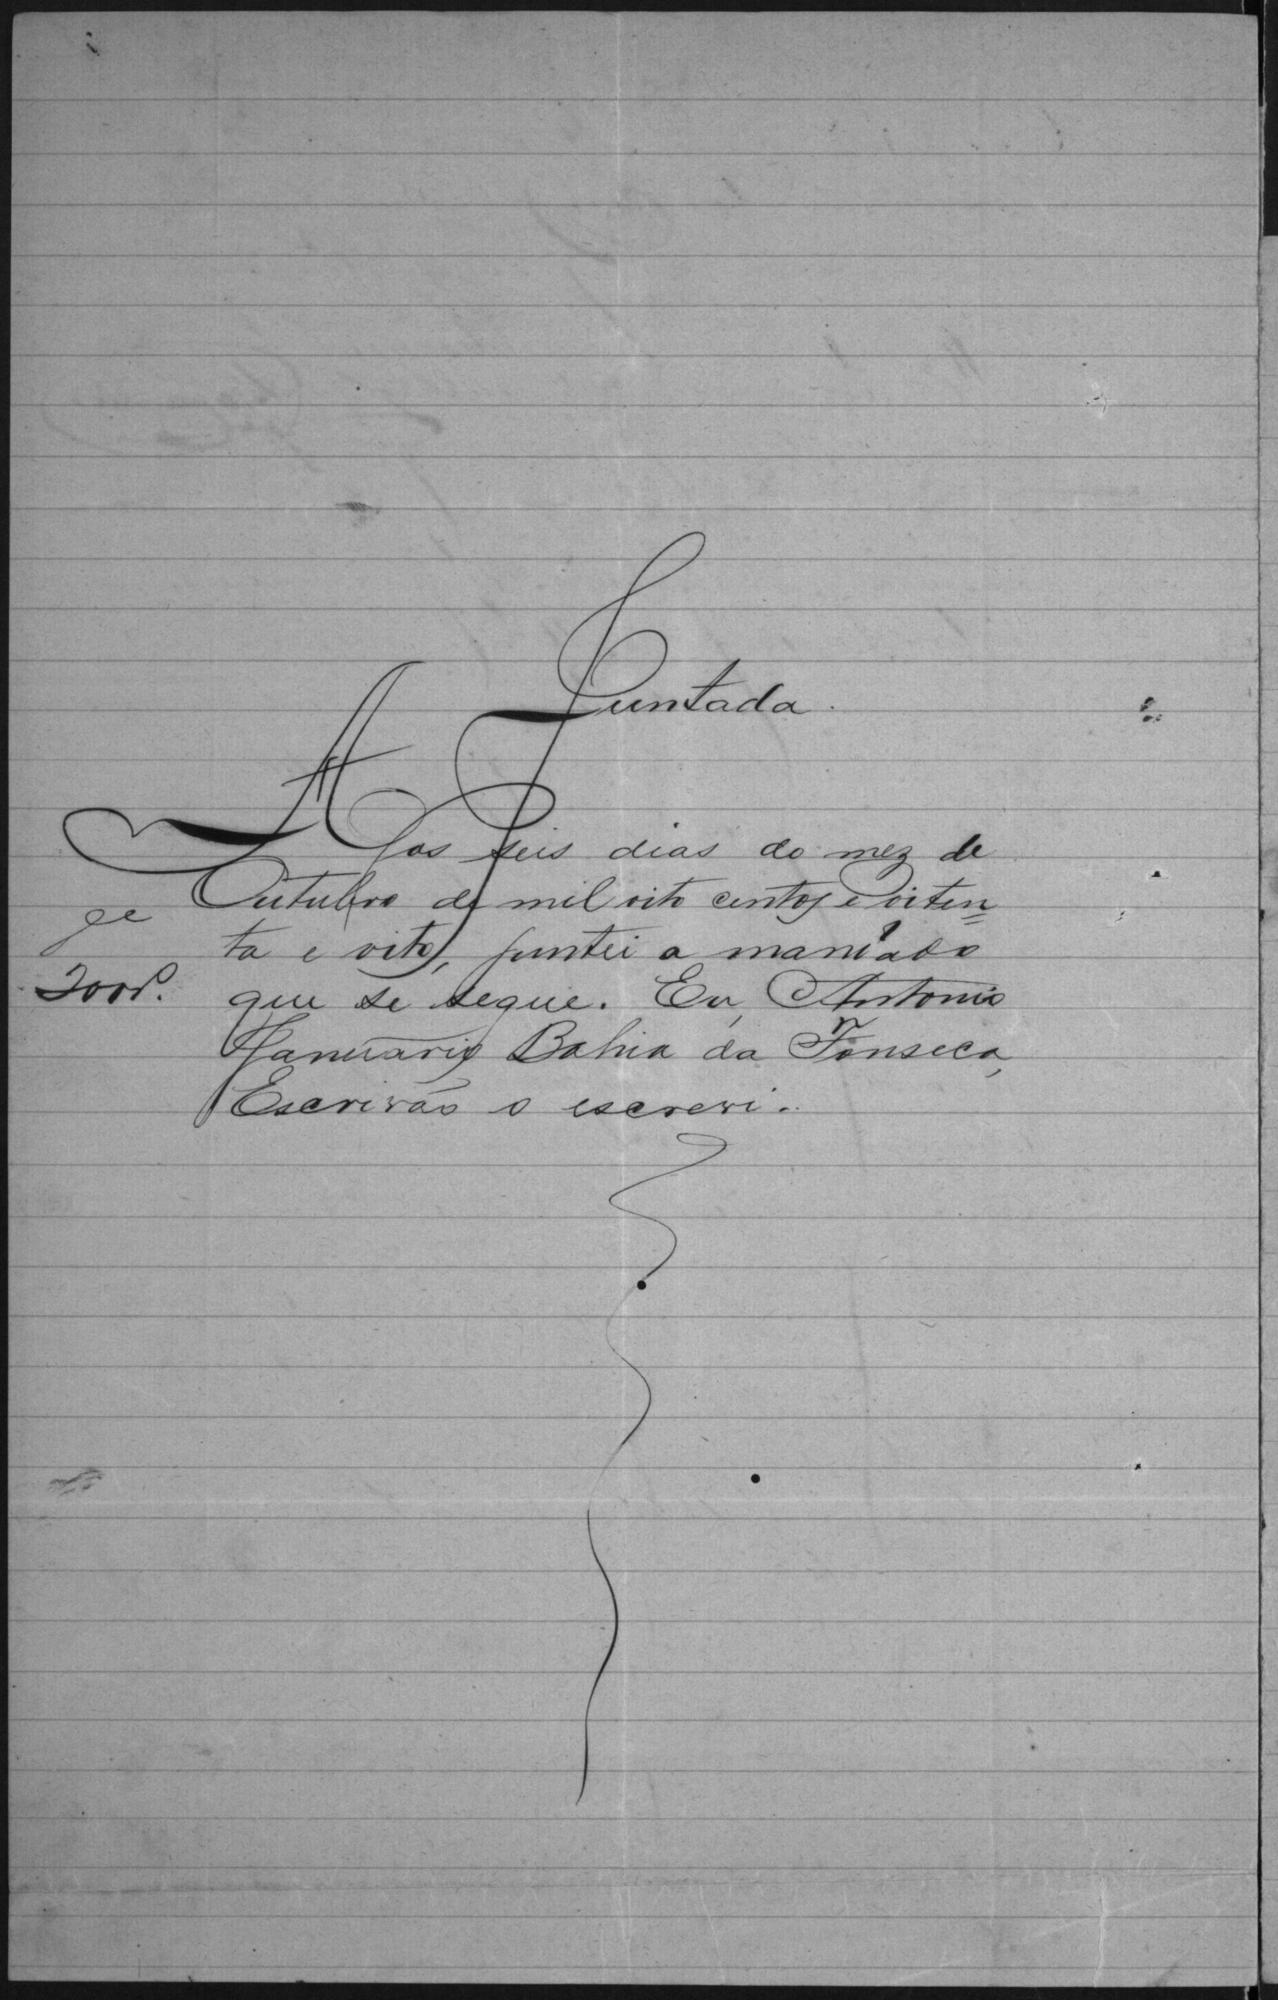 Juntada.
Aos seis dias do mez de
Outubro de mil oito centos e oiten=
ta e oito, juntei a mandado
que se segue. Eu, Antonio
Januario Bahia da Fonseca,
Escrivão o escrevi.
200rs.